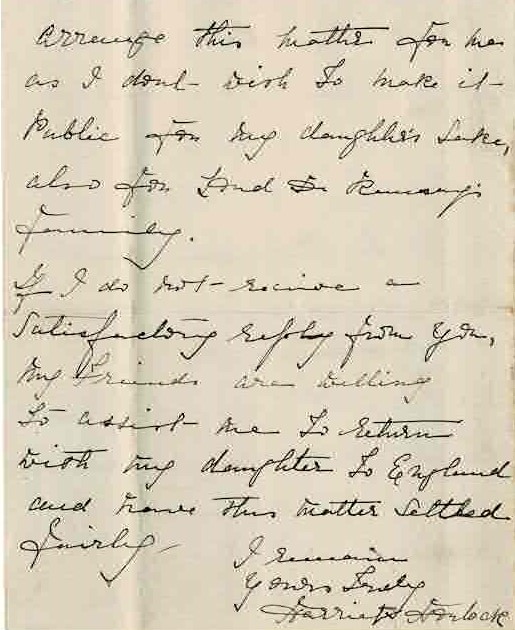 arrange this matter for me
as I dont wish to make it
Public for my daughters Sake,
also for Lord De Ramsey's
Family.
If I do not receive a
Satisfactory reply from you,
my Friends are willing
to assist me to return
with my daughter to England
and have this matter Settled
fairly—
I remain
Yours Truly
Harriet